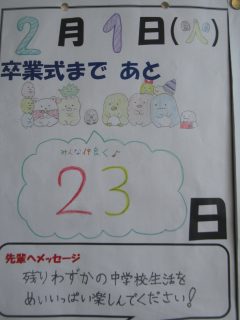 2月1日(火)
卒業式まで あと
みんな仲良く♪
23
日
先輩へメッセージ
残りわずかの中学校生活を
めいいっぱい楽しんでください!